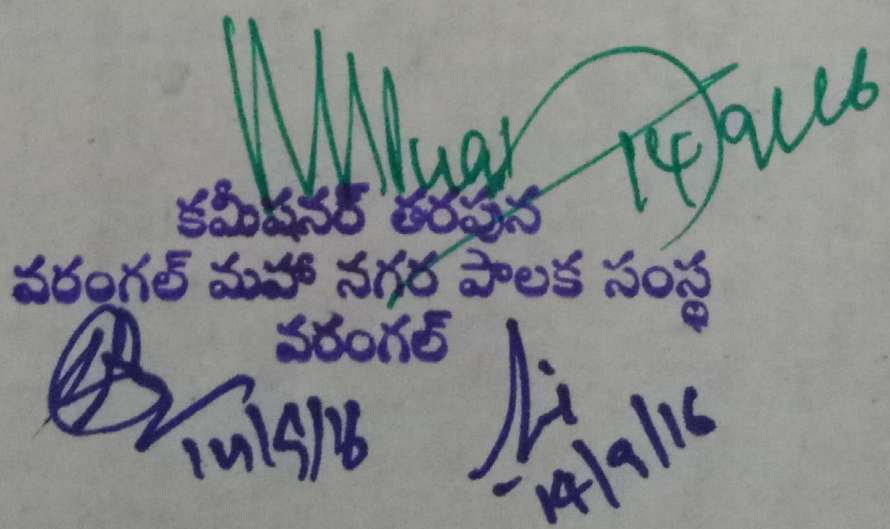 14/9/16
కమీషనర్ తరపున
వరంగల్ మహా నగర పాలక సంస్థ
వరంగల్
14/9/16
14/9/16